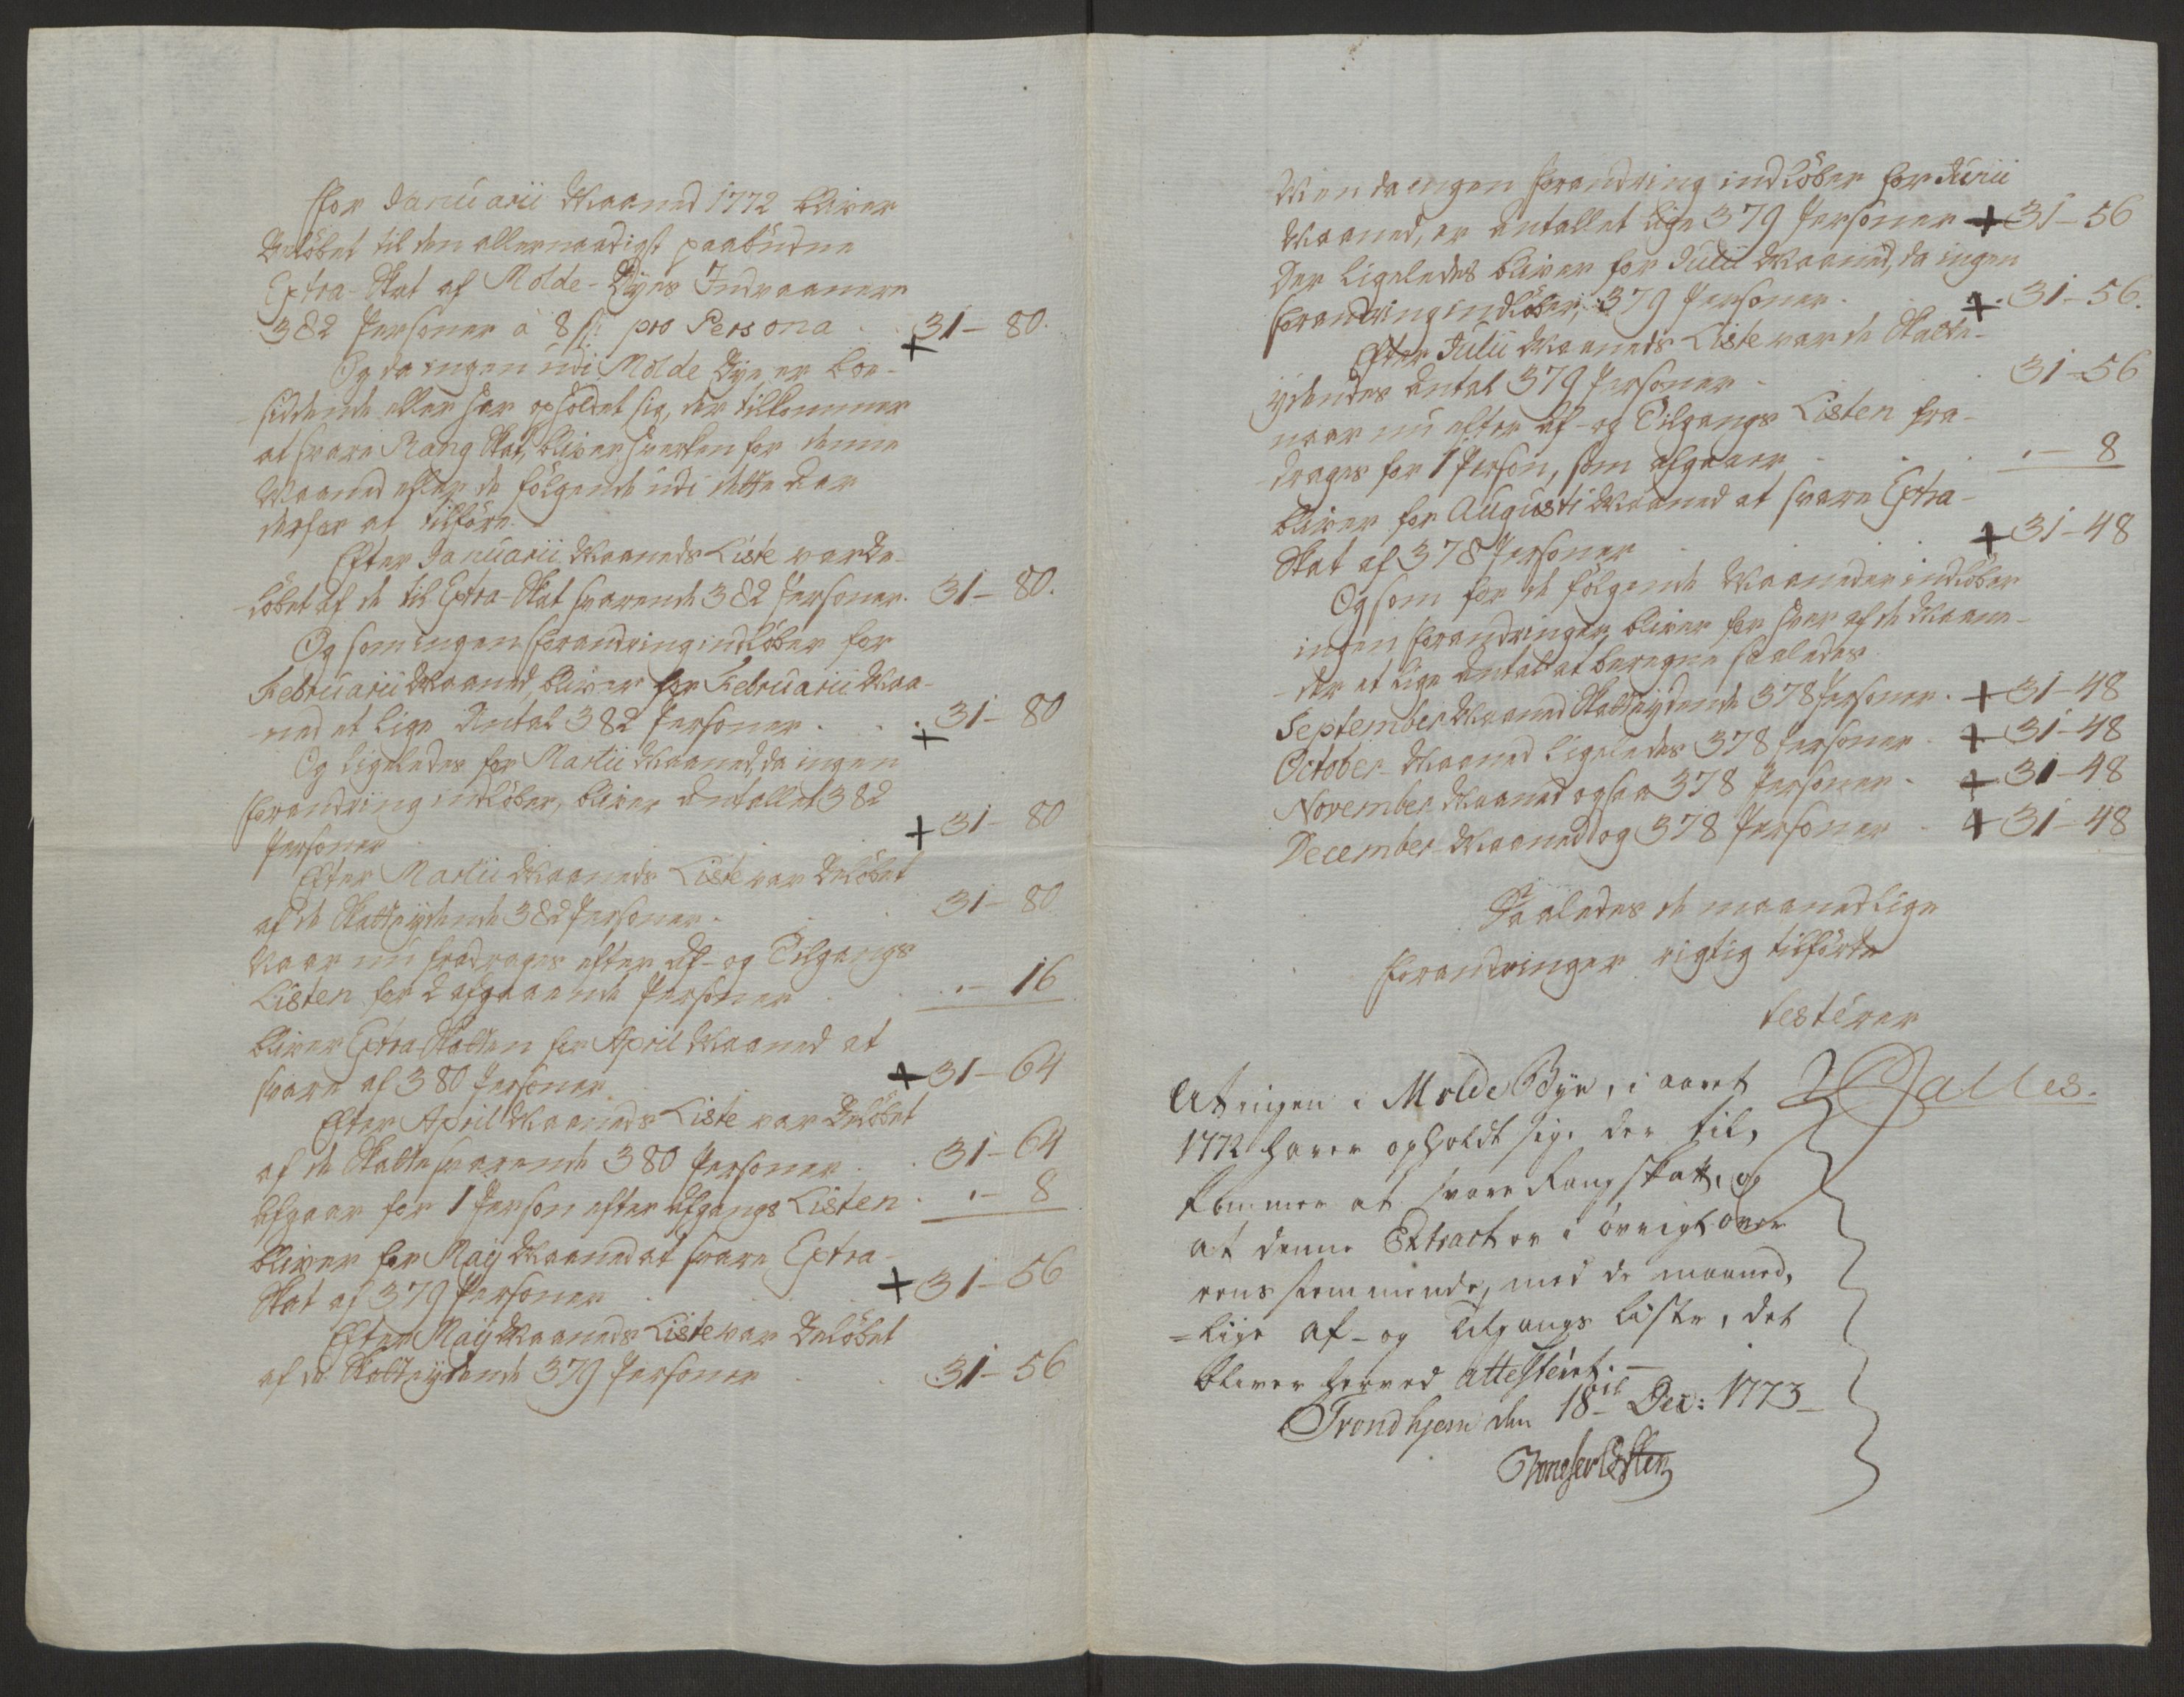 For Januarii Maaned 1772 bliver
Beløbet til den allernaadigst paabudne
Extra-Skat af Molde-Byes Indvaanere
382 Personer a 8 s: pro Persona . . + 31 - 80.
Og da ingen udi Molde Bye er boe-
siddende eller har opholdet sig, der tilkommer
at svare Rang Skat, bliver hverken for denne
Maaned eller de følgende udi dette Aar
derfor at tilføre.
Efter Januarii Maaneds Liste var Be-
løbet af de til Extra-Skat svarende 382 Personer. 31 - 80.
Og som ingen Forandring indløber for
Februarii Maaned, bliver for Februarii Maa-
ned et lige Antal 382 Personer . . + 31 - 80
Og ligeledes for Martii Maaned, da ingen
Forandring indløber, bliver Antallet 382
Personer + 31 - 80
Efter Martii Maaneds Liste var Beløbet
af de Skatteydende 382 Personer . 31 - 80
Naar nu fradrages efter Af- og Tilgangs
Listen for 2 afgaaende Personer . . - 16
bliver Extra Skatten for April Maaned at
svare af 380 Personer + 31 - 64
Efter April Maaneds Liste var Beløbet
af de Skattesvarende 380 Personer . . 31 - 64
Afgaar for 1 Person efter Afgangs Listen . . - 8
bliver for Maij Maaned at svare Extra-
Skat af 379 Personer . . + 31 - 56
Efter Maij Maaneds Liste var Beløbet
af de Skatteydende 379 Personer . . 31 - 56
Men da ingen Forandring indløber for Junii
Maaned, er Antallet lige 379 Personer + 31 - 56
Der ligeledes bliver for Julii Maaned, da ingen
Forandring indløber, 379 Personer . + 31 - 56.
Efter Julii Maaneds Liste var de Skatte-
ydendes Antal 379 Personer . . 31 - 56
naar nu efter Af- og Tilgangs Listen fra-
drages for 1 Person, som afgaaer . . . - 8
bliver for Augusti Maaned at svare Extra-
Skat af 378 Personer . . + 31 - 48
Og som for de følgende Maaneder indløber
ingen Forandringer, bliver for hver af de Maane-
der et lige Antal at beregne saaledes
September Maaned Skatteydende 378 Personer . + 31 - 48
October - Maaned ligeledes 378 Personer . + 31 - 48
November Maaned ogsaa 378 Personer . + 31 - 48
December - Maaned og 378 Personer . + 31 - 48
Saaledes de maanedlige
Forandringer rigtig tilførte
testerer
Dalles.
At ingen i Molde Bye, i aaret
1772 haver opholdt sig, der til,
kommer at svare Rang skatt, og
at denne Extract er i øvrigt over
eens stemmende, med de maaned,
=lige af- og Tilgangs liste, det
bliver herved attesteret. -
Trondhjem den 18de Dec: 1773 -